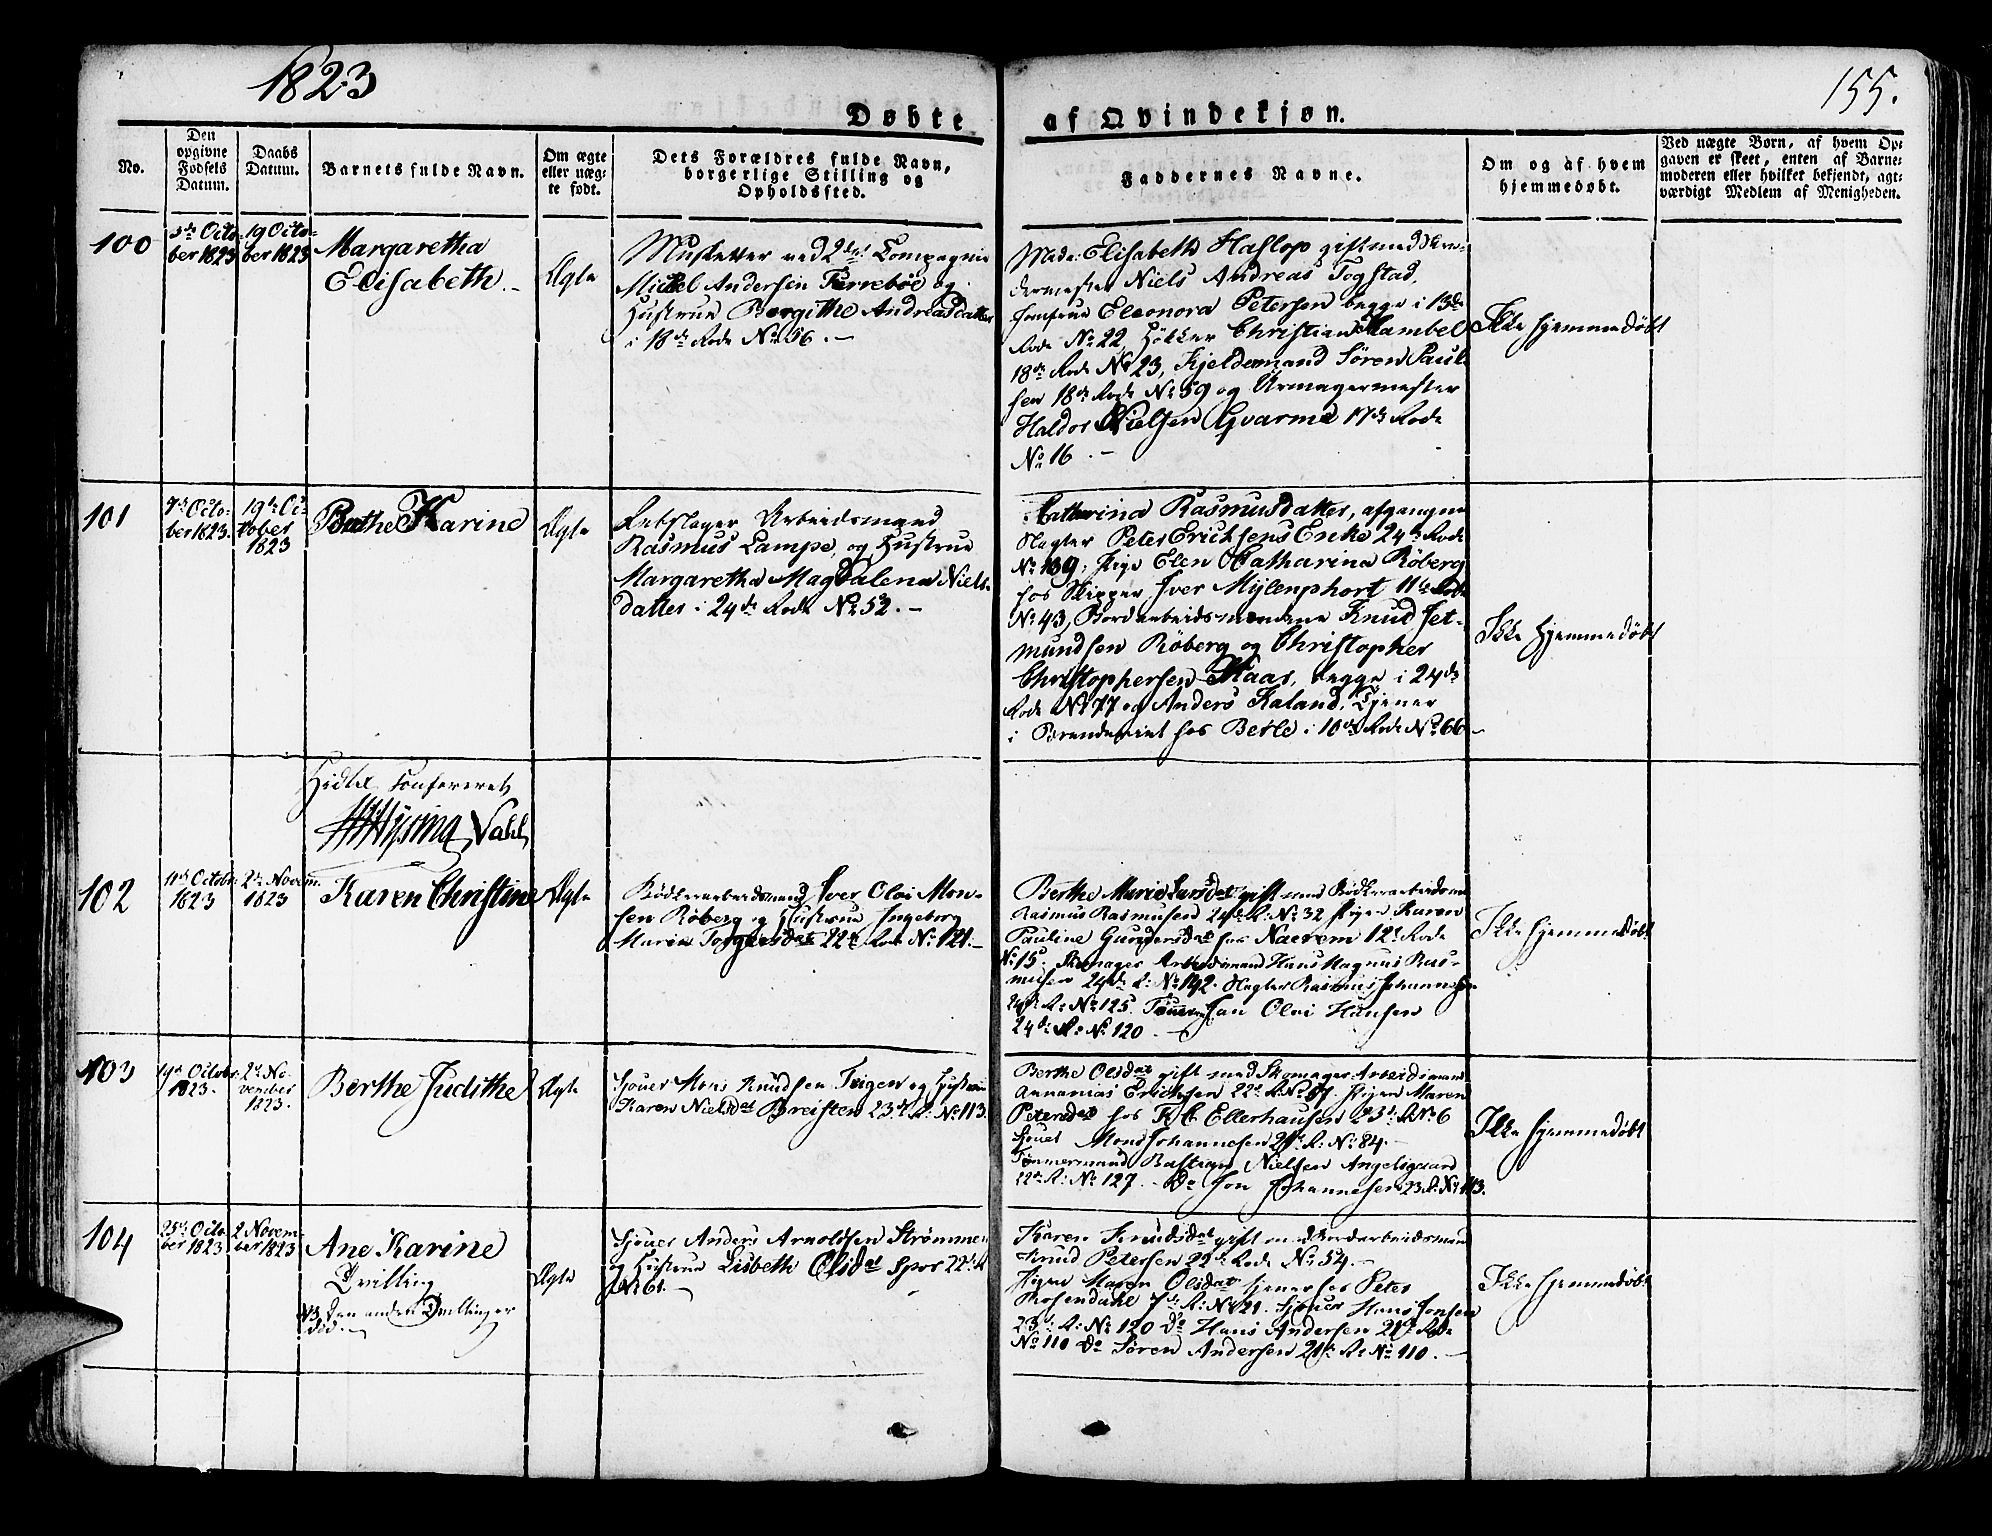 1823
155.
Døbte
af Qvindekjøn.
No.
Den
opgivne
Fødsels
Datum.
Daabs
Datum.
Barnets fulde Navn.
Om ægte
eller uæg-
te født.
Dets Forældres fulde Navn,
borgerlige Stilling og
Opholdssted.
Faddernes Navne.
Om og af hvem
hjemmedøbt.
Ved uægte Børn, af hvem Op-
gaven er skeet, enten af Barne-
moderen eller hvilket bekjendt, agt-
værdigt Medlem af Menigheden.
100
5te Octo-
ber 1823
19 Octo-
ber 1823
Margaretha
Elisabeth.-
Ægte
Musketter ved 2det Compagnie
Mickel Andersen Ferrebøe og
Hustrue Bergithe Andreasdatter
i 18de Rode No 56.-
Mad: Elisabeth Haslop gift med
Niels Andreas Togstad,
Jomfrue Eleonora Petersen begge i 13de
Rode No 22, Høkker Christian Hambel
18de Rode No 23, Kjeldermand Søren Paul-
sen 18de Rode No 59 og Urmagermester
Haldor Nielsen Gvarme 17de Rode
No 16.-
Ikke hjemmedøbt
101
7de Octo-
ber 1823.
19de Oc-
tober
1823
Berthe Karine
Ægte
Rebslager Arbeidsmand
Rasmus Lampe, og Hustrue
Margaretha Magdalena Niels-
datter i 24de Rode No 52.-
Catharina Rasmusdatter, afgangne
Slagter Peter Erichsens Enke 24de Rode
No 139, Pige Elen Catharina Røberg
hos Skipper Iver Mylenphort 11te Rode
No 43, Bordarbeidsmændene Knud Jet-
mundsen Røberg og Christopher
Christophersen Haas, begge i 24de
Rode No 77 og Anders Kaland, Tjener
i Brænderiet hos Berle i 10de Rode No 66-
Ikke hjemmedøbt
Hidtil Confereret
102
11te Octobr:
1823
2de Novem.
1823
Karen Christine
Ægte
Bødkerarbeidsmand Iver Olai Mon-
sen Røberg og Hustrue Ingeborg
Maria Torgersdat 22de Rode No 121.-
Berthe Marie Larsdat gift med Bødkerarbeidsm
Rasmus Rasmusen 24de R: No 32 Pigen Karen
Pauline Gundersdat hos Naerem 12te Rode
No 15. Skomager Arbeidsmand Hans Magnus Ras-
musen 24de R: No 142. Slagter Rasmus Johannesen
24de R: No 125. Jan Olai Hansen
24de R: No 120 -
Ikke hjemmedøbt
103
19de Octobr:
1823.
2de No-
vember
1823.
Berthe Judithe
Ægte
Sjouer Mons Knudsen Tvigen og Hustrue
Karen Nielsdat Breisten 23de R: No 113.
Berthe Olsdat gift med Skomager Arbeidsmand
Annanias Erichsen 22de R. No 87. Pigen Maren
Petersdat hos F. C. Ellerhausen 23de R No 6
Sjouer Mons Johannesen 21de R: No 84.-
Tømmermand Bastian Nielsen Angelsgaard
22de R: No 127. - Do Jon Johannesen 23 R: No 113.
Ikke hjemmedøbt
104
25de Octo-
ber 1823
2 Novem-
ber 1823
Ane Karine
Tvilling
NB Den anden Tvillinger
død.-
Ægte
Sjouer Anders Arnoldsen Strømmen
og Hustrue Lisbeth Olsdat Spor 22de R
No 61.-
Karen Knudsdat gift m. Bordarbeidsmand
Knud Petersen 22de Rode No 54.-
Pigen Maren Olsdat tjener hos Peter
Rosendahl 7de R: No 21. Sjouer Hans Jonsen
23: R: No 120 Do Hans Andersen 21de Rode
No 110 Do Søren Andersen 21de R: No 110.-
Ikke hjemmedøbt